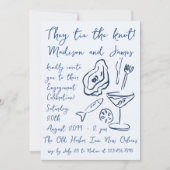 They tie the knot!
Madison and James
kindly invite
you to their
Engagement
Celebration!
Saturday
20th
August 2099 - 2 pm
The Old Harbor Inn New Orleans
rsvp by July 25 to Madison at 555.456.7890